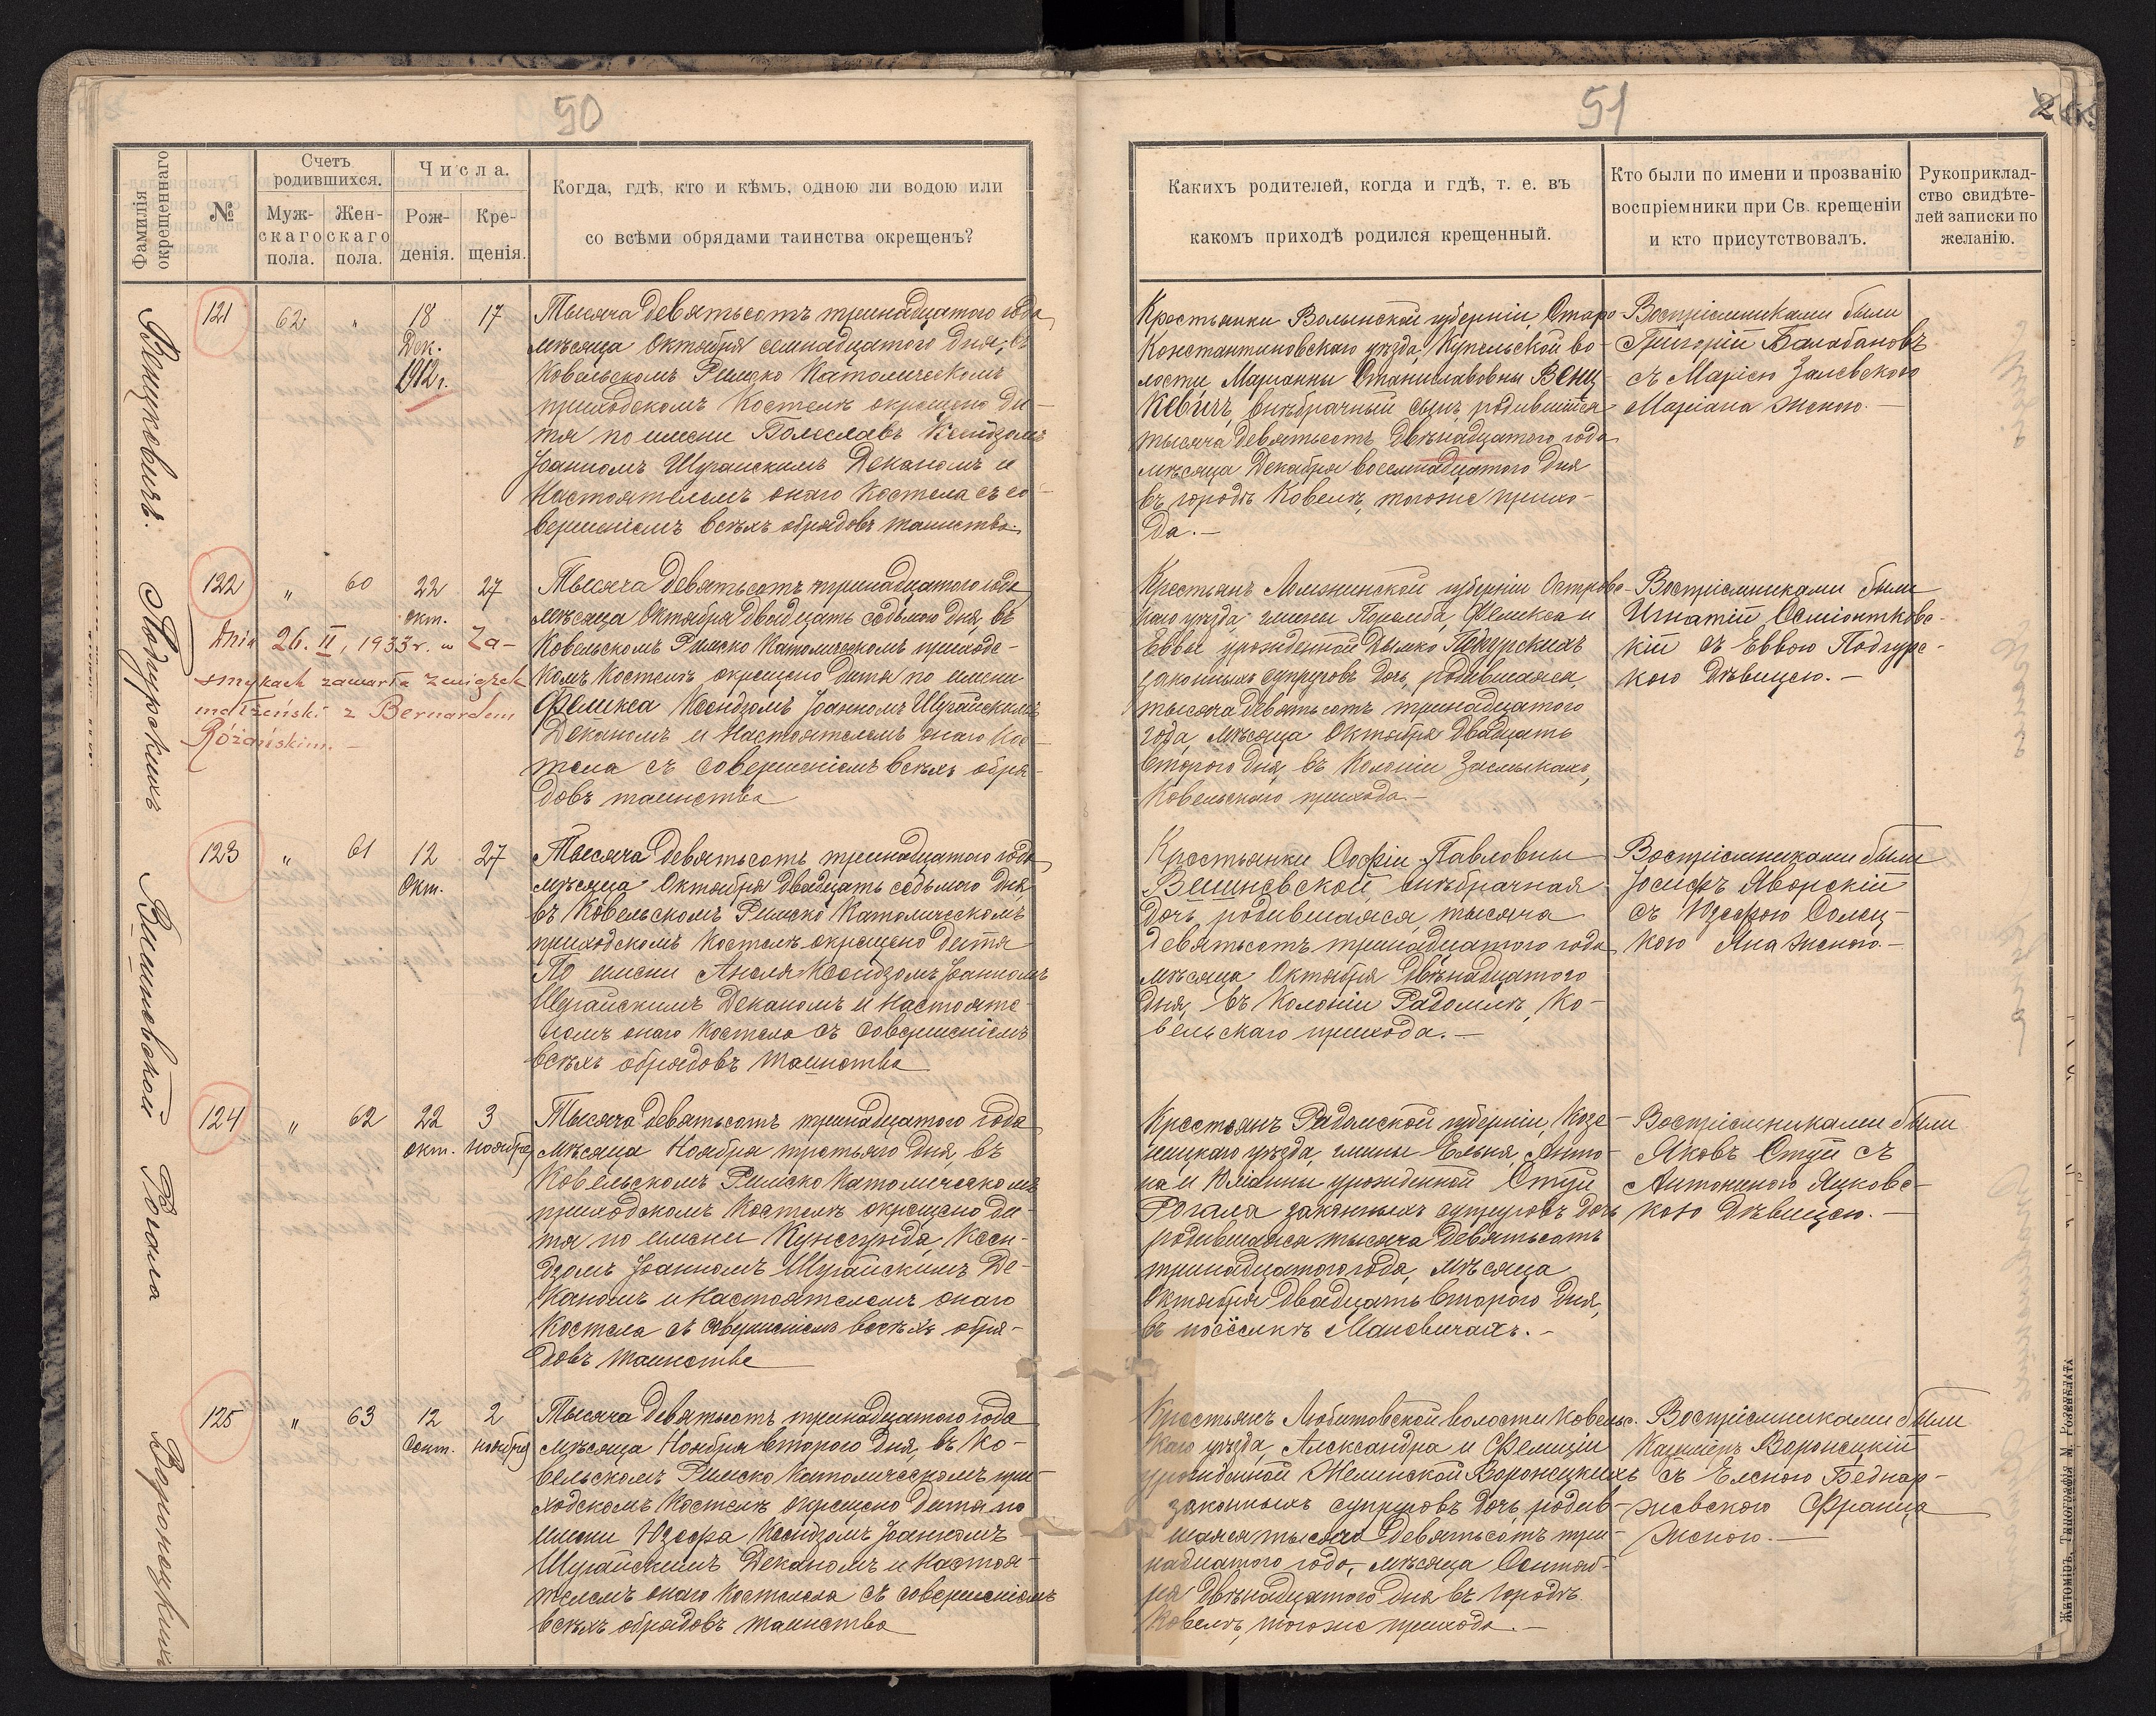 50
Фамилія окрещеннаго
№
Счетъ родившихся.
Муж-
скаго
пола.
Жен-
скаго
пола.
Числа.
Рож-
денія.
Кре-
щенія.
Когда, гдѣ, кто и кѣмъ, одною ли водою или
со всѣми обрядами таинства окрещенъ?
Венцкевичъ.
121
62
"
18
Дек.
1912 г.
17
Тысяча девятьсотъ тринадцатого года
мѣсяца Октября семнадцатого дня, въ
Ковельскомъ Римско Католическомъ
приходскомъ Костелѣ окрещено ди-
тя по имени Волеславъ Ксендзомъ
Іоанномъ Шугайскимъ Деканомъ и
Настоятелемъ онаго Костела съ со-
вершеніемъ всѣхъ обрядовъ таинства.
Подгурскихъ
122
"
60
22
окт.
27
Тысяча девятьсотъ тринадцатого года
мѣсяца Октября двадцать седьмого дня, въ
Ковельскомъ Римско Католическомъ приходс-
комъ Костелѣ окрещено дитя по имени
Феликса Ксендзомъ Іоанномъ Шугайскимъ
Деканомъ и Настоятелемъ онаго Ко-
тела съ совершеніемъ всѣхъ обря-
довъ таинства
Dnia 26. II, 1933 r. w Za-
smykach zawarła związek
małżeński z Bernardem
Różańskim. —
Вишневской
123
"
61
12
Окт.
27
Тысяча девятьсотъ тринадцатого года
мѣсяца Октября двадцать седьмого дня,
въ Ковельскомъ Римско Католическомъ
приходскомъ Костелѣ окрещено дитя
По имени Анеля Ксендзомъ Іоанномъ
Шугайскимъ Деканомъ и Настояте-
лемъ онаго Костела съ совершеніемъ
всѣхъ обрядовъ таинства
Рогала
124
"
62
22
окт.
3
ноября
Тысяча девятьсотъ тринадцатого года
мѣсяца Ноября третьяго дня, въ
Ковельскомъ Римско Католическомъ
приходскомъ Костелѣ окрещено ди-
тя по имени Кунегунда, Ксен-
дзомъ Іоанномъ Шугайскимъ Де-
каномъ и Настоятелемъ онаго
Костела съ совершеніемъ всѣхъ обря-
довъ таинства
Воронецкихъ
125
"
63
12
Сент.
2
ноября
Тысяча девятьсотъ тринадцатого года
мѣсяца Ноября второго дня, въ Ко-
вельскомъ Римско Католическомъ при-
ходскомъ Костелѣ окрещено дитя по
имени Юзефа Ксендзомъ Іоанномъ
Шугайскимъ Деканомъ и Настоя-
телемъ онаго Костела съ совершеніемъ
всѣхъ обрядовъ таинства
51
26.
Какихъ родителей, когда и гдѣ, т. е. въ
какомъ приходѣ родился крещенный.
Кто были по имени и прозванію
воспріемники при Св. крещеніи
и кто присутствовалъ.
Рукоприклад-
ство свидѣте-
лей записки по
желанію.
Крестьянки Волынской губерніи, Старо-
Константиновскаго уѣзда, Купельской во-
лости, Марианны Станиславовны Венц-
кевичъ, внѣбрачный сынъ, родившійся
тысяча девятьсотъ двѣнадцатого года
мѣсяца Декабря восемнадцатого дня
въ городѣ Ковелѣ, тогоже прихо-
да. —
Воспріемниками были
Григорій Балабановъ
съ Маріею Залевскою
Маріана женою. —
Крестьянъ Ломжинской губерніи Островс-
каго уѣзда, гмины Поремба, Феликса и
Еввы урожденной Дымко Подгурскихъ
законныхъ супруговъ дочь, родившаяся,
тысяча девятьсотъ тринадцатого
года, мѣсяца Октября двадцать
второго дня, въ Колоніи Засмыкахъ,
Ковельскаго прихода. —
Воспріемниками были
Игнатій Осміонтковс-
кій съ Еввою Подгурс-
кою Дѣвицею. —
Крестьянки Софіи Павловны
Вишневской, внѣбрачная
дочь, родившаяся, тысяча
девятьсотъ тринадцатого года
мѣсяца Октября двѣнадцатого
дня, въ Колоніи Радомлѣ, Ко-
вельскаго прихода. —
Воспріемниками были
Іосифъ Яворскій
съ Юзефою Солец-
кою Яна женою. —
Крестьянъ Радомской губерніи, Козе-
ницкаго уѣзда, гмины Ельня, Анто-
на и Юліанны урожденной Стуй
Рогала законныхъ супруговъ дочь
родившаяся тысяча девятьсотъ
тринадцатого года, мѣсяца
Октября двадцать второго дня,
въ посёлкѣ Маневичахъ. —
Воспріемниками были
Яковъ Стуй съ
Антониною Яцковс-
кою Дѣвицею. —
Крестьянъ Любитовской волости Ковельс-
каго уѣзда, Александра и Фелиціи
урожденной Желинской Воронецкихъ
законныхъ супруговъ дочь, родив-
шаяся тысяча девятьсотъ три-
надцатого года, мѣсяца Сентяб-
ря двѣнадцатого дня въ городѣ
Ковелѣ, тогоже прихода. —
Воспріемниками были
Казимиръ Воронецкій
съ Еленою Беднар-
жевскою Франца
женою. —
Житоміръ, Типографія М. Розенблата